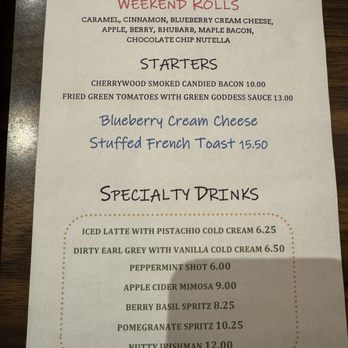 WEEKEND ROLLS
CARAMEL, CINNAMON, BLUEBERRY CREAM CHEESE,
APPLE, BERRY, RHUBARB, MAPLE BACON,
CHOCOLATE CHIP NUTELLA
STARTERS
CHERRYWOOD SMOKED CANDIED BACON 10.00
FRIED GREEN TOMATOES WITH GREEN GODDESS SAUCE 13.00
Blueberry Cream Cheese
Stuffed French Toast 15.50
SPECIALTY DRINKS
ICED LATTE WITH PISTACHIO COLD CREAM 6.25
DIRTY EARL GREY WITH VANILLA COLD CREAM 6.50
PEPPERMINT SHOT 6.00
APPLE CIDER MIMOSA 9.00
BERRY BASIL SPRITZ 8.25
POMEGRANATE SPRITZ 10.25
NUTTY IRISHMAN 12.00